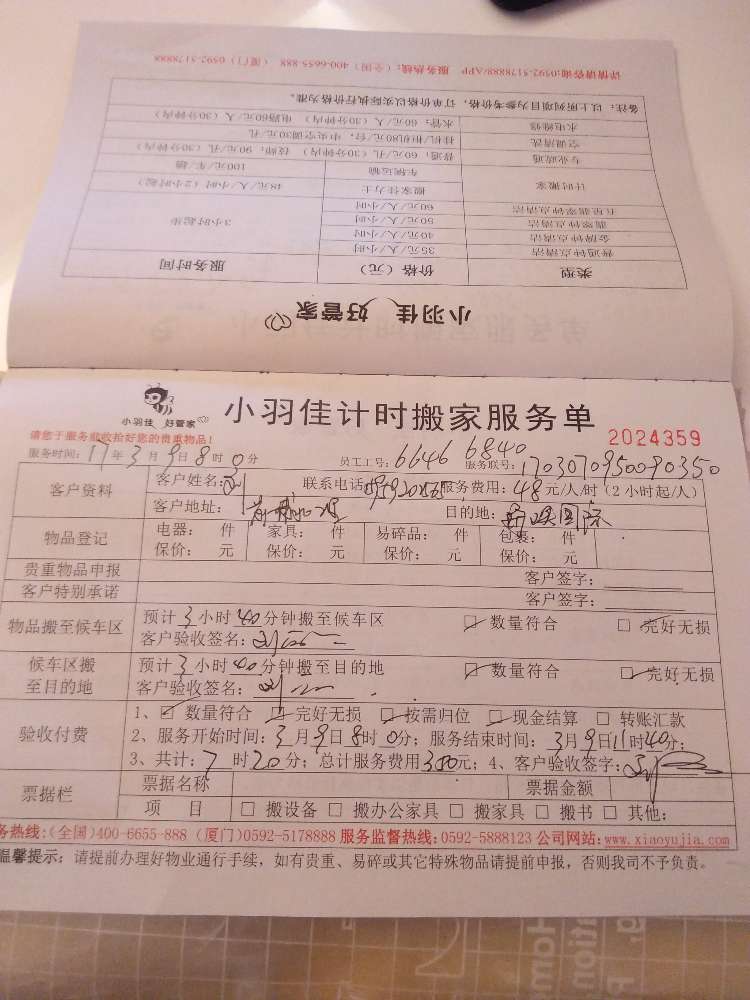 详情请咨询:0592-5178888/APP 服务热线:(全国)400-6655-888 (厦门)0592-5178888
备注：以上所列项目为参考价格，订单价格以实际执行价格为准。
水电维修 水管：60元/人(30分钟内) 电路60元/人(30分钟内)
空调清洗 挂机/柜机80元/台；中央空调30元/孔
专业疏通 普通：60元/孔(30分钟内) 技师：90元/孔(30分钟内)
计时搬家 车辆运输 100元/车/趟
搬家佳力士 48元/人/小时(2小时起)
五星翡翠钟点清洁 60元/人/小时
翡翠钟点清洁 50元/人/小时 3小时起步
金牌钟点清洁 40元/人/小时
普通钟点清洁 35元/人/小时
类型 价格(元) 服务时间
小羽佳 好管家
小羽佳 好管家
小羽佳计时搬家服务单
2024359
请您于服务前收拾好您的贵重物品！
服务时间：17年3月9日8时0分 员工工号：6646 6840 服务联号：1703070950090350
客户资料 客户姓名：刘 联系电话 服务费用：48元/人/时(2小时起/人)
客户地址： 目的地：
物品登记 电器： 件 家具： 件 易碎品： 件 包裹： 件
保价： 元 保价： 元 保价： 元 保价： 元
贵重物品申报 客户签字：
客户特别承诺 客户签字：
物品搬至候车区 预计3小时40分钟搬至候车区 数量符合 完好无损
客户验收签名：刘
候车区搬至目的地 预计3小时40分钟搬至目的地 数量符合 完好无损
客户验收签名：刘
验收付费 1、数量符合 完好无损 按需归位 现金结算 转账汇款
2、服务开始时间：3月9日8时0分；服务结束时间：3月9日11时40分；
3、共计：7时20分；总计服务费用350元；4、客户验收签字：刘
票据栏 票据名称 票据金额
项 目 搬设备 搬办公家具 搬家具 搬书 其他：
务热线:(全国)400-6655-888 (厦门)0592-5178888 服务监督热线:0592-5888123 公司网站:www.xiaoyujia.com
温馨提示：请提前办理好物业通行手续，如有贵重、易碎或其它特殊物品请提前申报，否则我司不予负责。